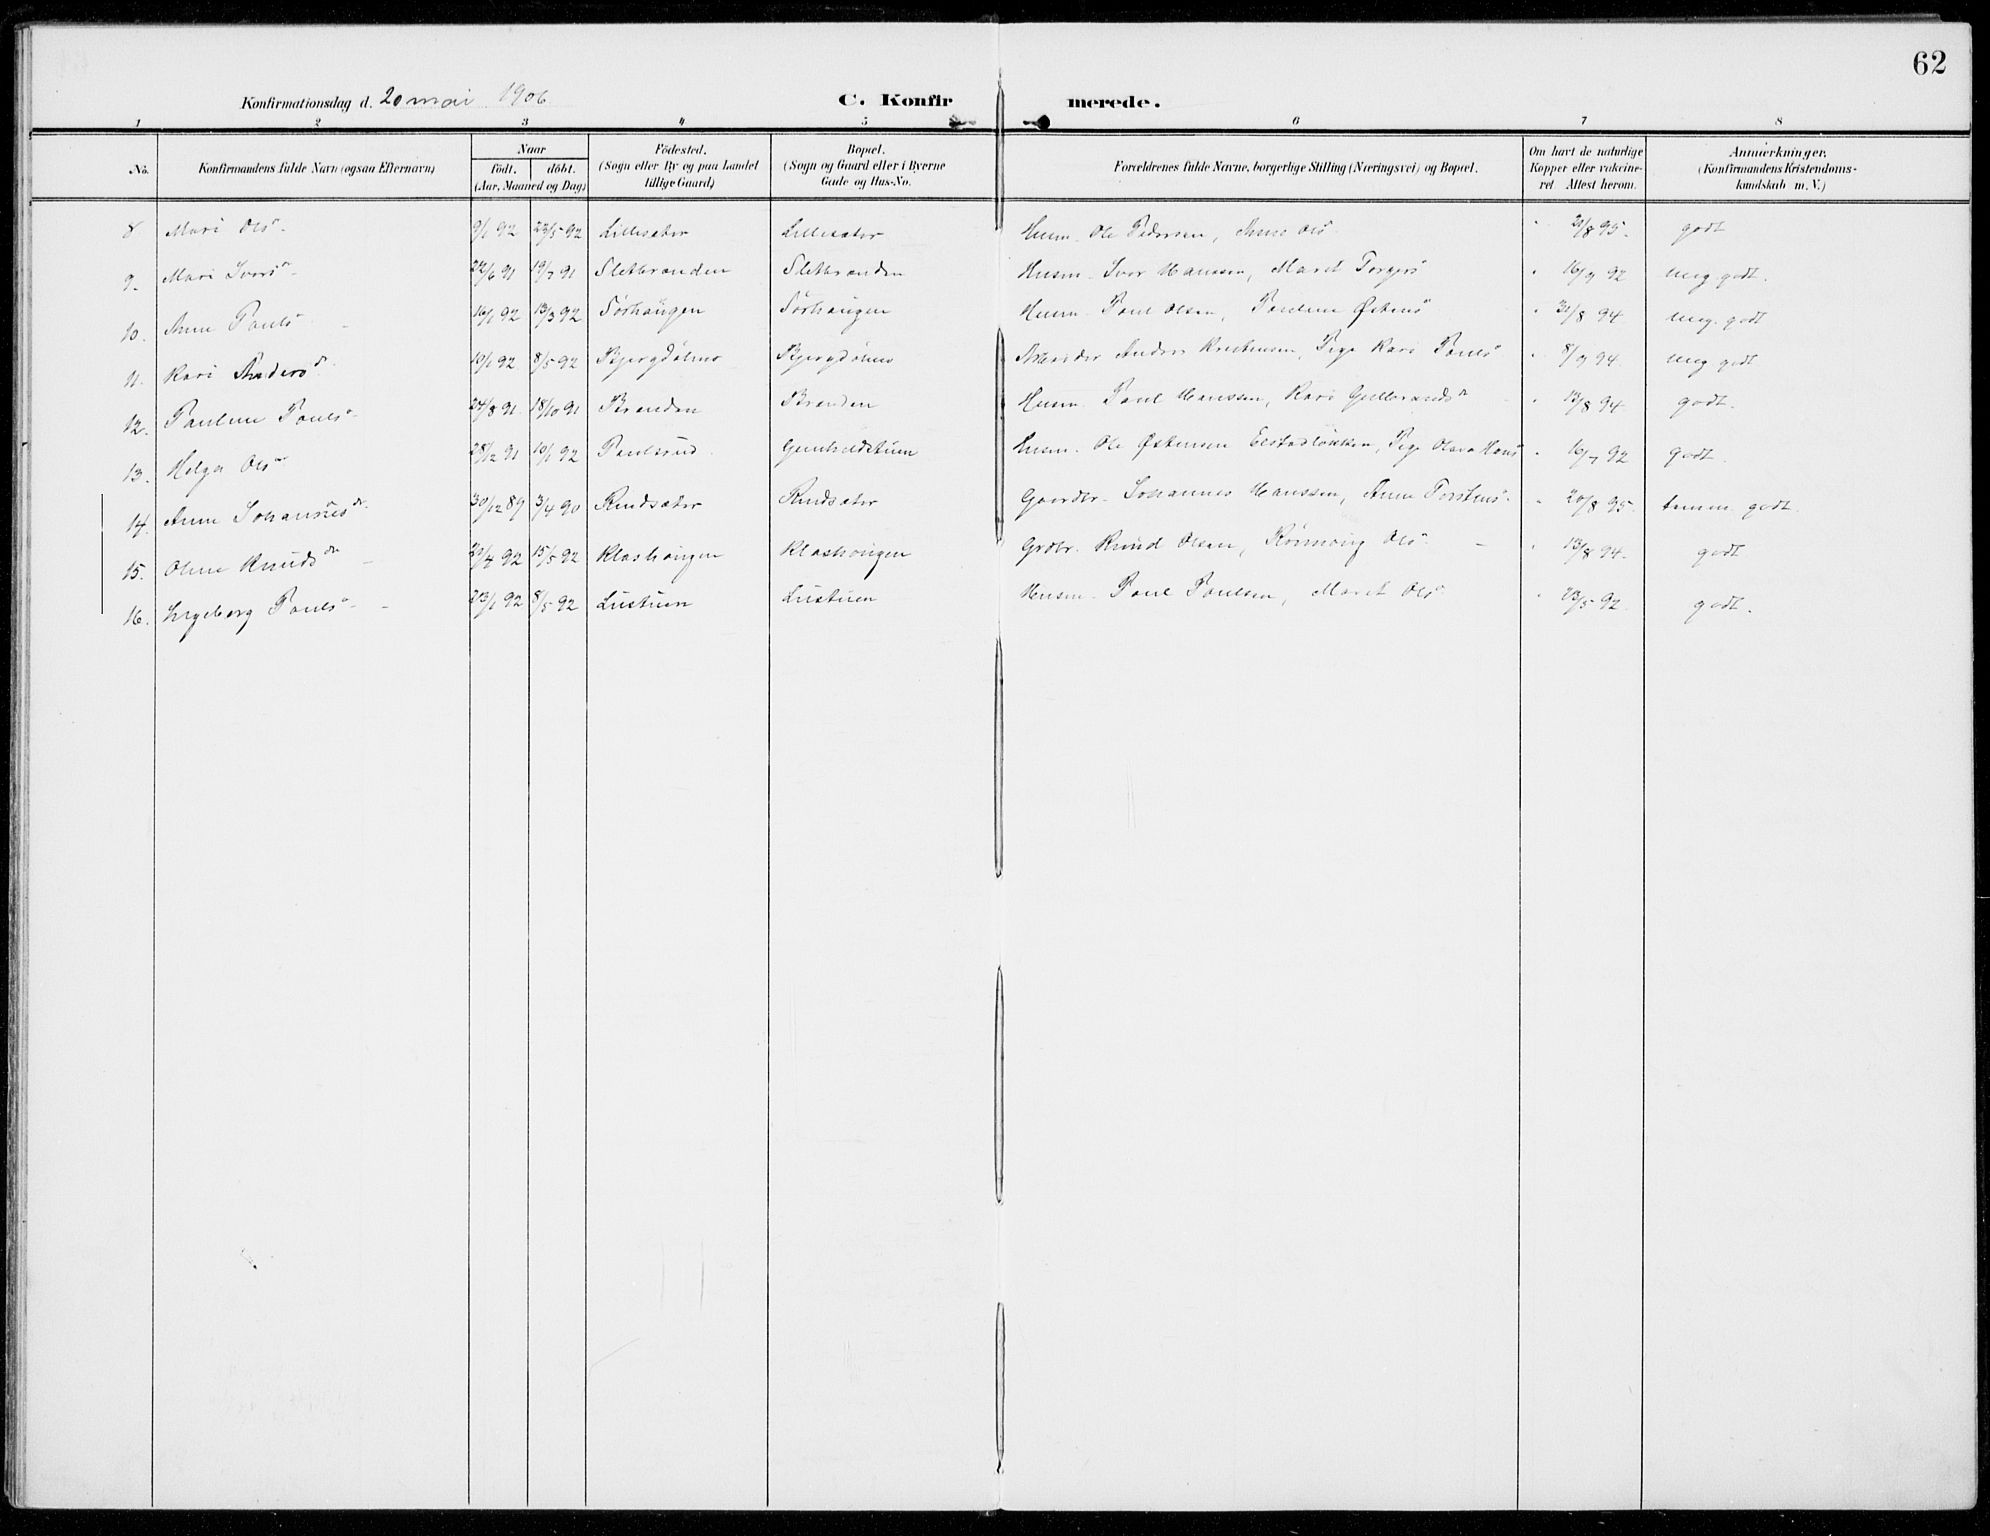 62
Konfirmationsdag d. 20 mai 1906 C. Konfirmerede.
1 2 3 4 5 6 7 8
No. Konfirmandens fulde Navn (ogsaa Efternavn) Naar födt. döbt. (Aar, Maaned og Dag) Födested. (Sogn eller By og paa Landet tillige Gaard) Bopæl. (Sogn og Gaard eller i Byerne Gade og Hus-No. Forældrenes fulde Navne, borgerlige Stilling (Næringsvei) og Bopæl. Om havt de naturlige Kopper eller vakcineret. Attest herom. Anmærkninger. (Konfirmandens Kristendomskundskab m. V.)
8 Mari Ols d. 9/1 92 23/5 92 Lillesæter Lillesæter Husm. Ole Pedersen, Anne Olsd. " 21/8 95. godt
9. Mari Ivers d. 22/6 91 19/7 91 Sletbranden Sletbranden Husm. Ivar Hanssen, Marit Torgersd " 16/9 92 meg. godt.
10. Anne Pauls d 16/1 92 13/3 92 Sörhaugen Sörhaugen Husm. Paul Olsen, Pauline Østensd " 31/8 94 meg. godt
11. Kari Anders d. 10/1 92 8/5 92 Bjergdølmo Bjergdølmo Arbeider Anders Kristensen, Pige Kari Paulsd " 8/9 94. meg godt
12. Pauline Pauls d. 24/8 91 18/10 91 Branden Branden Husm. Paul Hanssen, Kari Gulbrands d " 13/8 94 godt.
13. Helga Ols d 28/12 91 10/1 92 Paulsrud Gunhildstuen Husm. Ole Østensen Elstadløkken, Pige Olava Hansd " 16/7 92 godt.
14. Anne Johannes dr. 30/12 89 3/4 90 Rudsæter Rudsæter Gaardbr. Johannes Hanssen, Anne Torstensd. " 20/8 95. temm. godt.
15. Oline Knuds dr 20/4 92 15/5 92 Klashaugen Klashaugen Grdbr. Knud Olsen, Rønnaug Olsd. " 13/8 94. godt
16. Ingeborg Pauls d. 23/1 92 8/5 92 Lustuen Lustuen Husm. Paul Paulsen, Marit Olsd " 23/5 92. godt.